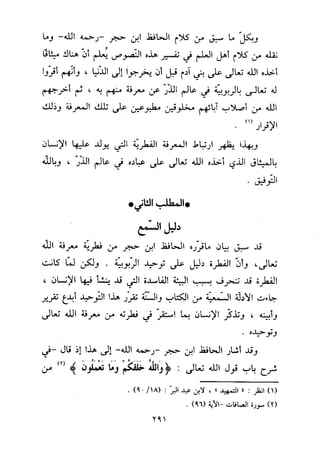 وبكلّ ما سبق من كلام الحافظ ابن حجر -رحمه الله- وما
نقله من كلام أهل العلم في تفسير هذه النصوص يُعلم أنّ هناك ميثاقًا
أخذه الله تعالى على بني آدم قبل أن يخرجوا إلى الدّنيا ، وأنّهم أقرّوا
له تعالى بالربوبيّة في عالم الذّرّ عن معرفة منهم به ، ثم أخرجهم
الله من أصلاب آبائهم مخلوقين مطبوعين على تلك المعرفة وذلك
الإقرار (١) .
وبهذا يظهر ارتباط المعرفة الفطريّة التي يولد عليها الإنسان
بالميثاق الذي أخذه الله تعالى على عباده في عالم الذّرّ ، وبالله
التّوفيق .
• المطلب الثّاني •
دليل السّمع
قد سبق بيان ماقرّره الحافظ ابن حجر من فطريّة معرفة الله
تعالى، وأنّ الفطرة دليل على توحيد الرّبوبيّة . ولكن لمّا كانت
الفطرة قد تنحرف بسبب البيئة الفاسدة التي قد ينشأ فيها الإنسان ،
جاءت الأدلّة السّمعيّة من الكتاب والسنّة تقرّر هذا التّوحيد أبدع تقرير
وأبينه ، وتذكّر الإنسان بما استقرّ في فطرته من معرفة الله تعالى
وتوحيده .
وقد أشار الحافظ ابن حجر -رحمه الله- إلى هذا إذ قال -في
شرح باب قول الله تعالى : ﴿ وَاللَّهُ خَلَقَكُمْ وَمَا تَعْمَلُونَ ﴾ (٢) من
(١) انظر : « التمهيد » ، لابن عبد البرّ : (١٨/ ٩٠) .
(٢) سورة الصافات - الآية (٩٦) .
٢٩١